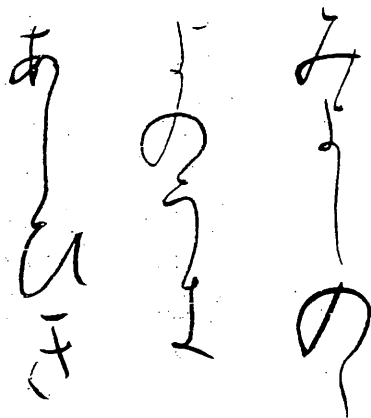 みよしのゝ
よのうま
あしひき